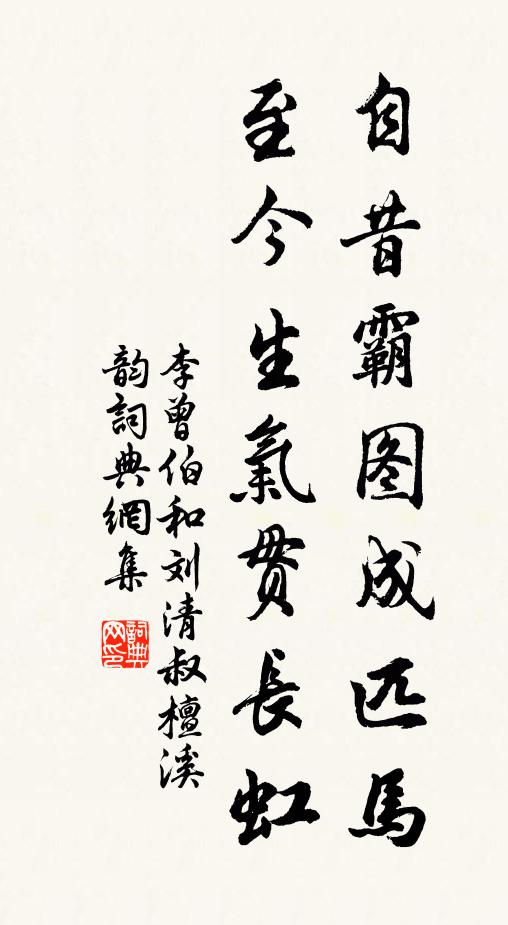 自昔霸图成匹馬
至今生氣贯長虹
李曾伯和刘清叔檀溪
韵詞典網集
詞典网印